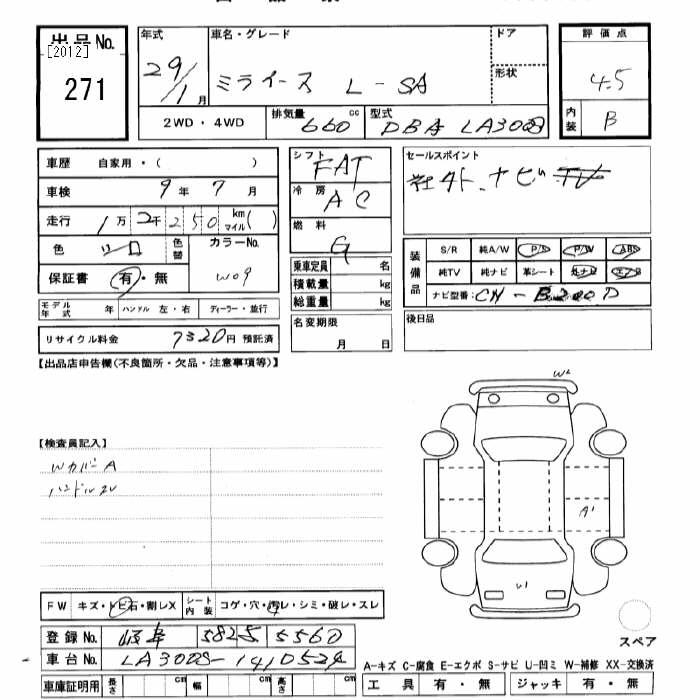 出品No.
[2012]
271
年式 29/1月
車名・グレード
ミライース L-SA
ドア
形状
2WD・4WD
排気量 660 cc
型式 DBA LA300S
評価点
4.5
内装 B
車歴 自家用・( )
車検 9年 7月
走行 1万2千250 km マイル( )
色 シロ 色替 カラーNo. W09
保証書 有・無
モデル年式 年 ハンドル 左・右 ディーラー・並行
リサイクル料金 7320円 預託済
シフト FAT
冷房 AC
燃料 G
乗車定員 名
積載量 kg
総重量 kg
名変期限 月 日
セールスポイント
社外ナビ TV
装備品
S/R 純A/W P/S P/W ABS
純TV 純ナビ 革シート 社ナビ エアB
ナビ型番: CH-B200D
後日品
【出品店申告欄(不良箇所・欠品・注意事項等)】
【検査員記入】
WカバーA
ハンドルスレ
W2
A1
U1
スペア
FW キズ・トビ石・割レX シート内装 コゲ・穴・汚レ・シミ・破レ・スレ
登録No. 岐阜 582 5560
車台No. LA300S-1410524
A-キズ C-腐食 E-エクボ S-サビ U-凹ミ W-補修 XX-交換済
車庫証明用 長さ cm 幅 cm 高さ cm
工具 有・無 ジャッキ 有・無